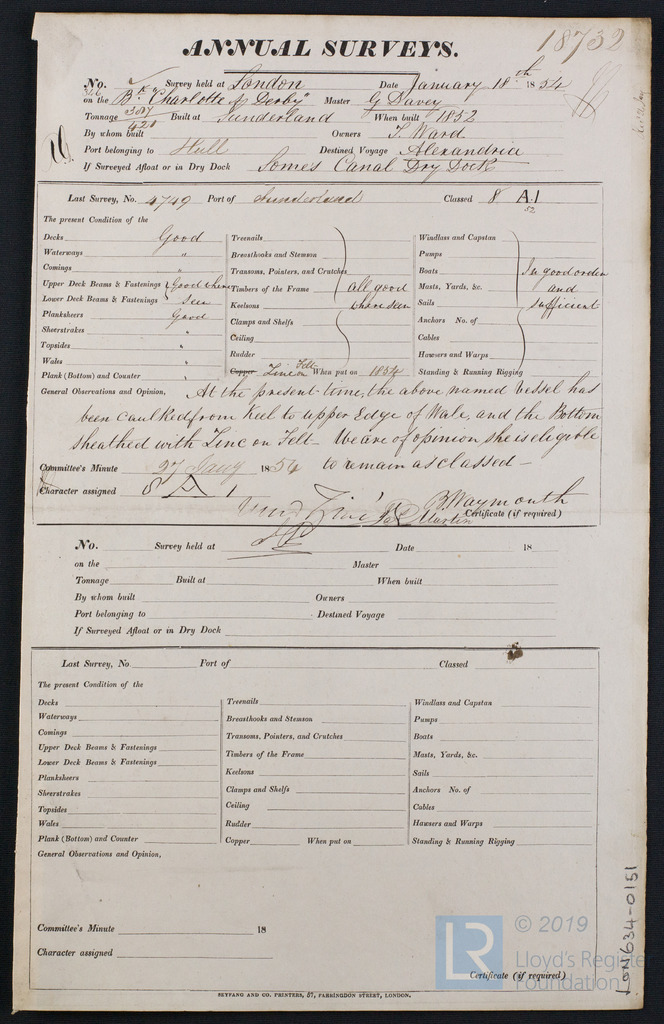 18732
ANNUAL SURVEYS.
No. 346 Survey held at London Date January 18th 1854
on the Bk "Charlotte A Derby" Master G Davey
Tonnage 420 Built at Sunderland When built 1852
By whom built Owners T. Ward
Port belonging to Hull Destined Voyage Alexandria
If Surveyed Afloat or in Dry Dock Somes Canal Dry Dock
Last Survey, No. 4749 Port of Sunderland Classed 8 A.1
52
The present Condition of the
Decks Good
Waterways "
Comings "
Upper Deck Beams & Fastenings Good where
Lower Deck Beams & Fastenings seen
Planksheers Good
Sheerstrakes "
Topsides "
Wales "
Plank (Bottom) and Counter "
Treenails
Breasthooks and Stemson
Transoms, Pointers, and Crutches
Timbers of the Frame all good
Keelsons where seen
Clamps and Shelfs
Ceiling
Rudder
Copper Zinc on Felt When put on 1854
Windlass and Capstan
Pumps
Boats In good order
Masts, Yards, &c. and
Sails sufficient
Anchors No. of
Cables
Hawsers and Warps
Standing & Running Rigging
General Observations and Opinion, At the present time, the above named Vessel has
been caulked from Keel to upper Edge of Wale, and the Bottom
sheathed with Zinc on Felt – We are of opinion she is eligible
to remain as classed –
Committee's Minute 27 Jany 1854
Character assigned 8 A 1
B. Waymouth
Martin
Certificate (if required)
No. Survey held at Date 18
on the Master
Tonnage Built at When built
By whom built Owners
Port belonging to Destined Voyage
If Surveyed Afloat or in Dry Dock
Last Survey, No. Port of Classed
The present Condition of the
Decks
Waterways
Comings
Upper Deck Beams & Fastenings
Lower Deck Beams & Fastenings
Planksheers
Sheerstrakes
Topsides
Wales
Plank (Bottom) and Counter
Treenails
Breasthooks and Stemson
Transoms, Pointers, and Crutches
Timbers of the Frame
Keelsons
Clamps and Shelfs
Ceiling
Rudder
Copper When put on
Windlass and Capstan
Pumps
Boats
Masts, Yards, &c.
Sails
Anchors No. of
Cables
Hawsers and Warps
Standing & Running Rigging
General Observations and Opinion,
Committee's Minute 18
Character assigned
Certificate (if required)
SEYFANG AND CO. PRINTERS, 57, FARRINGDON STREET, LONDON.
LON634-0151
LR
© 2019
Lloyd's Register
Foundation